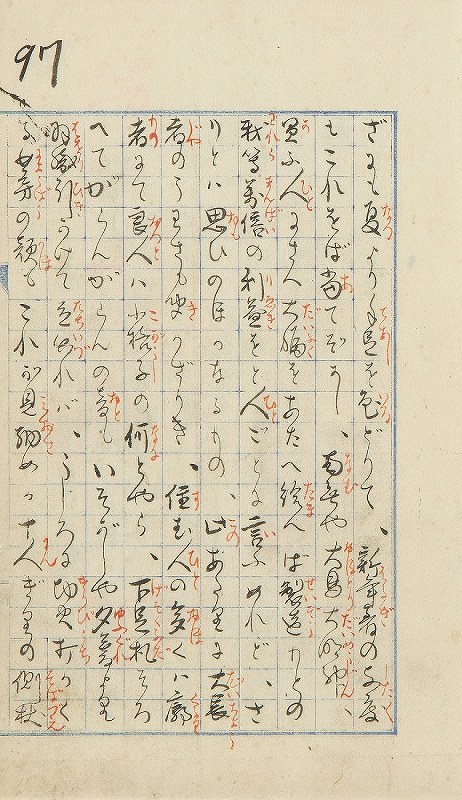 97
ざにも夏より手足を色どりて、新年着の支度
もこれをば当てぞかし、南無や大鳥大明神、
買ふ人にさへ大福をあたへ給へば製造もとの
我等萬倍の利益をと人ごとに言ふめれど、さ
りとは思ひのほかなるもの、此あたりに大長
者のうわさも聞かざりき、住む人の多くは廓
者にて良人は小格子の何とやら、下足札そろ
へてがらんがらんの音もいそがしや夕暮より
羽織引かけて立出れば、うしろに切火打かく
る女房の顔もこれが見納めか十人ぎりの側杖